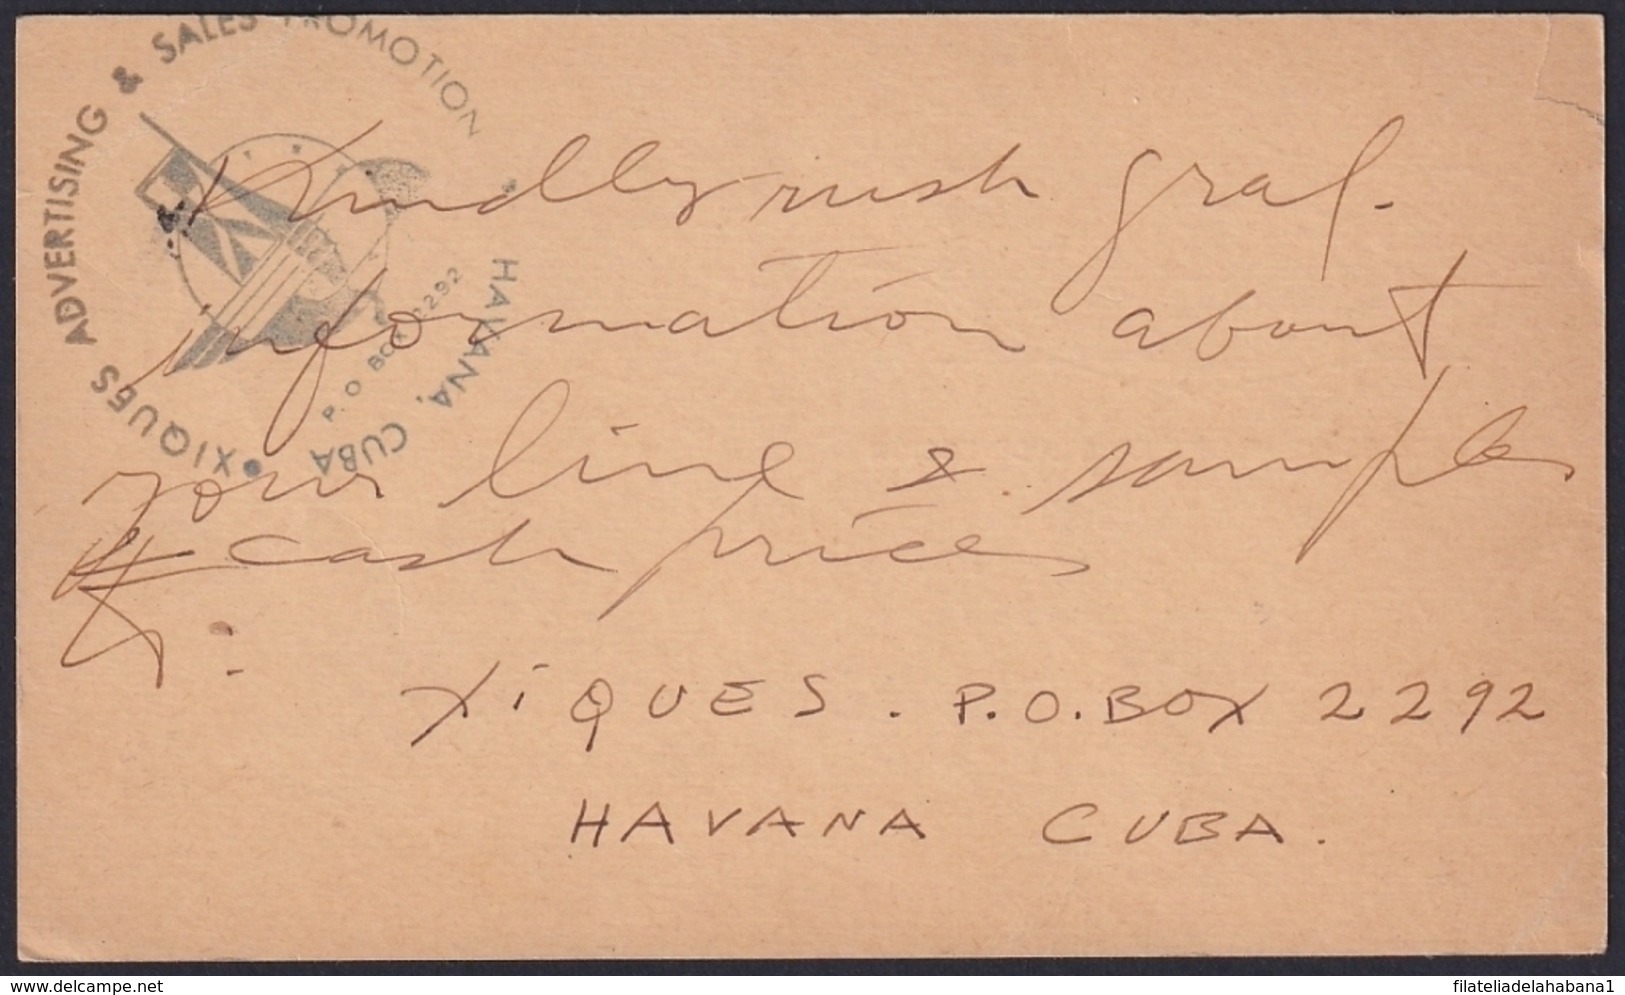 XIQUES ADVERTISING & SALES PROMOTION
HAVANA, CUBA
P.O BOX 2292
Kindly rush gral.
information about
your line & samples
& cash prices
XiQUES. P.O. BOX 2292
HAVANA CUBA.
www.delcampe.net
filateliadelahabana1